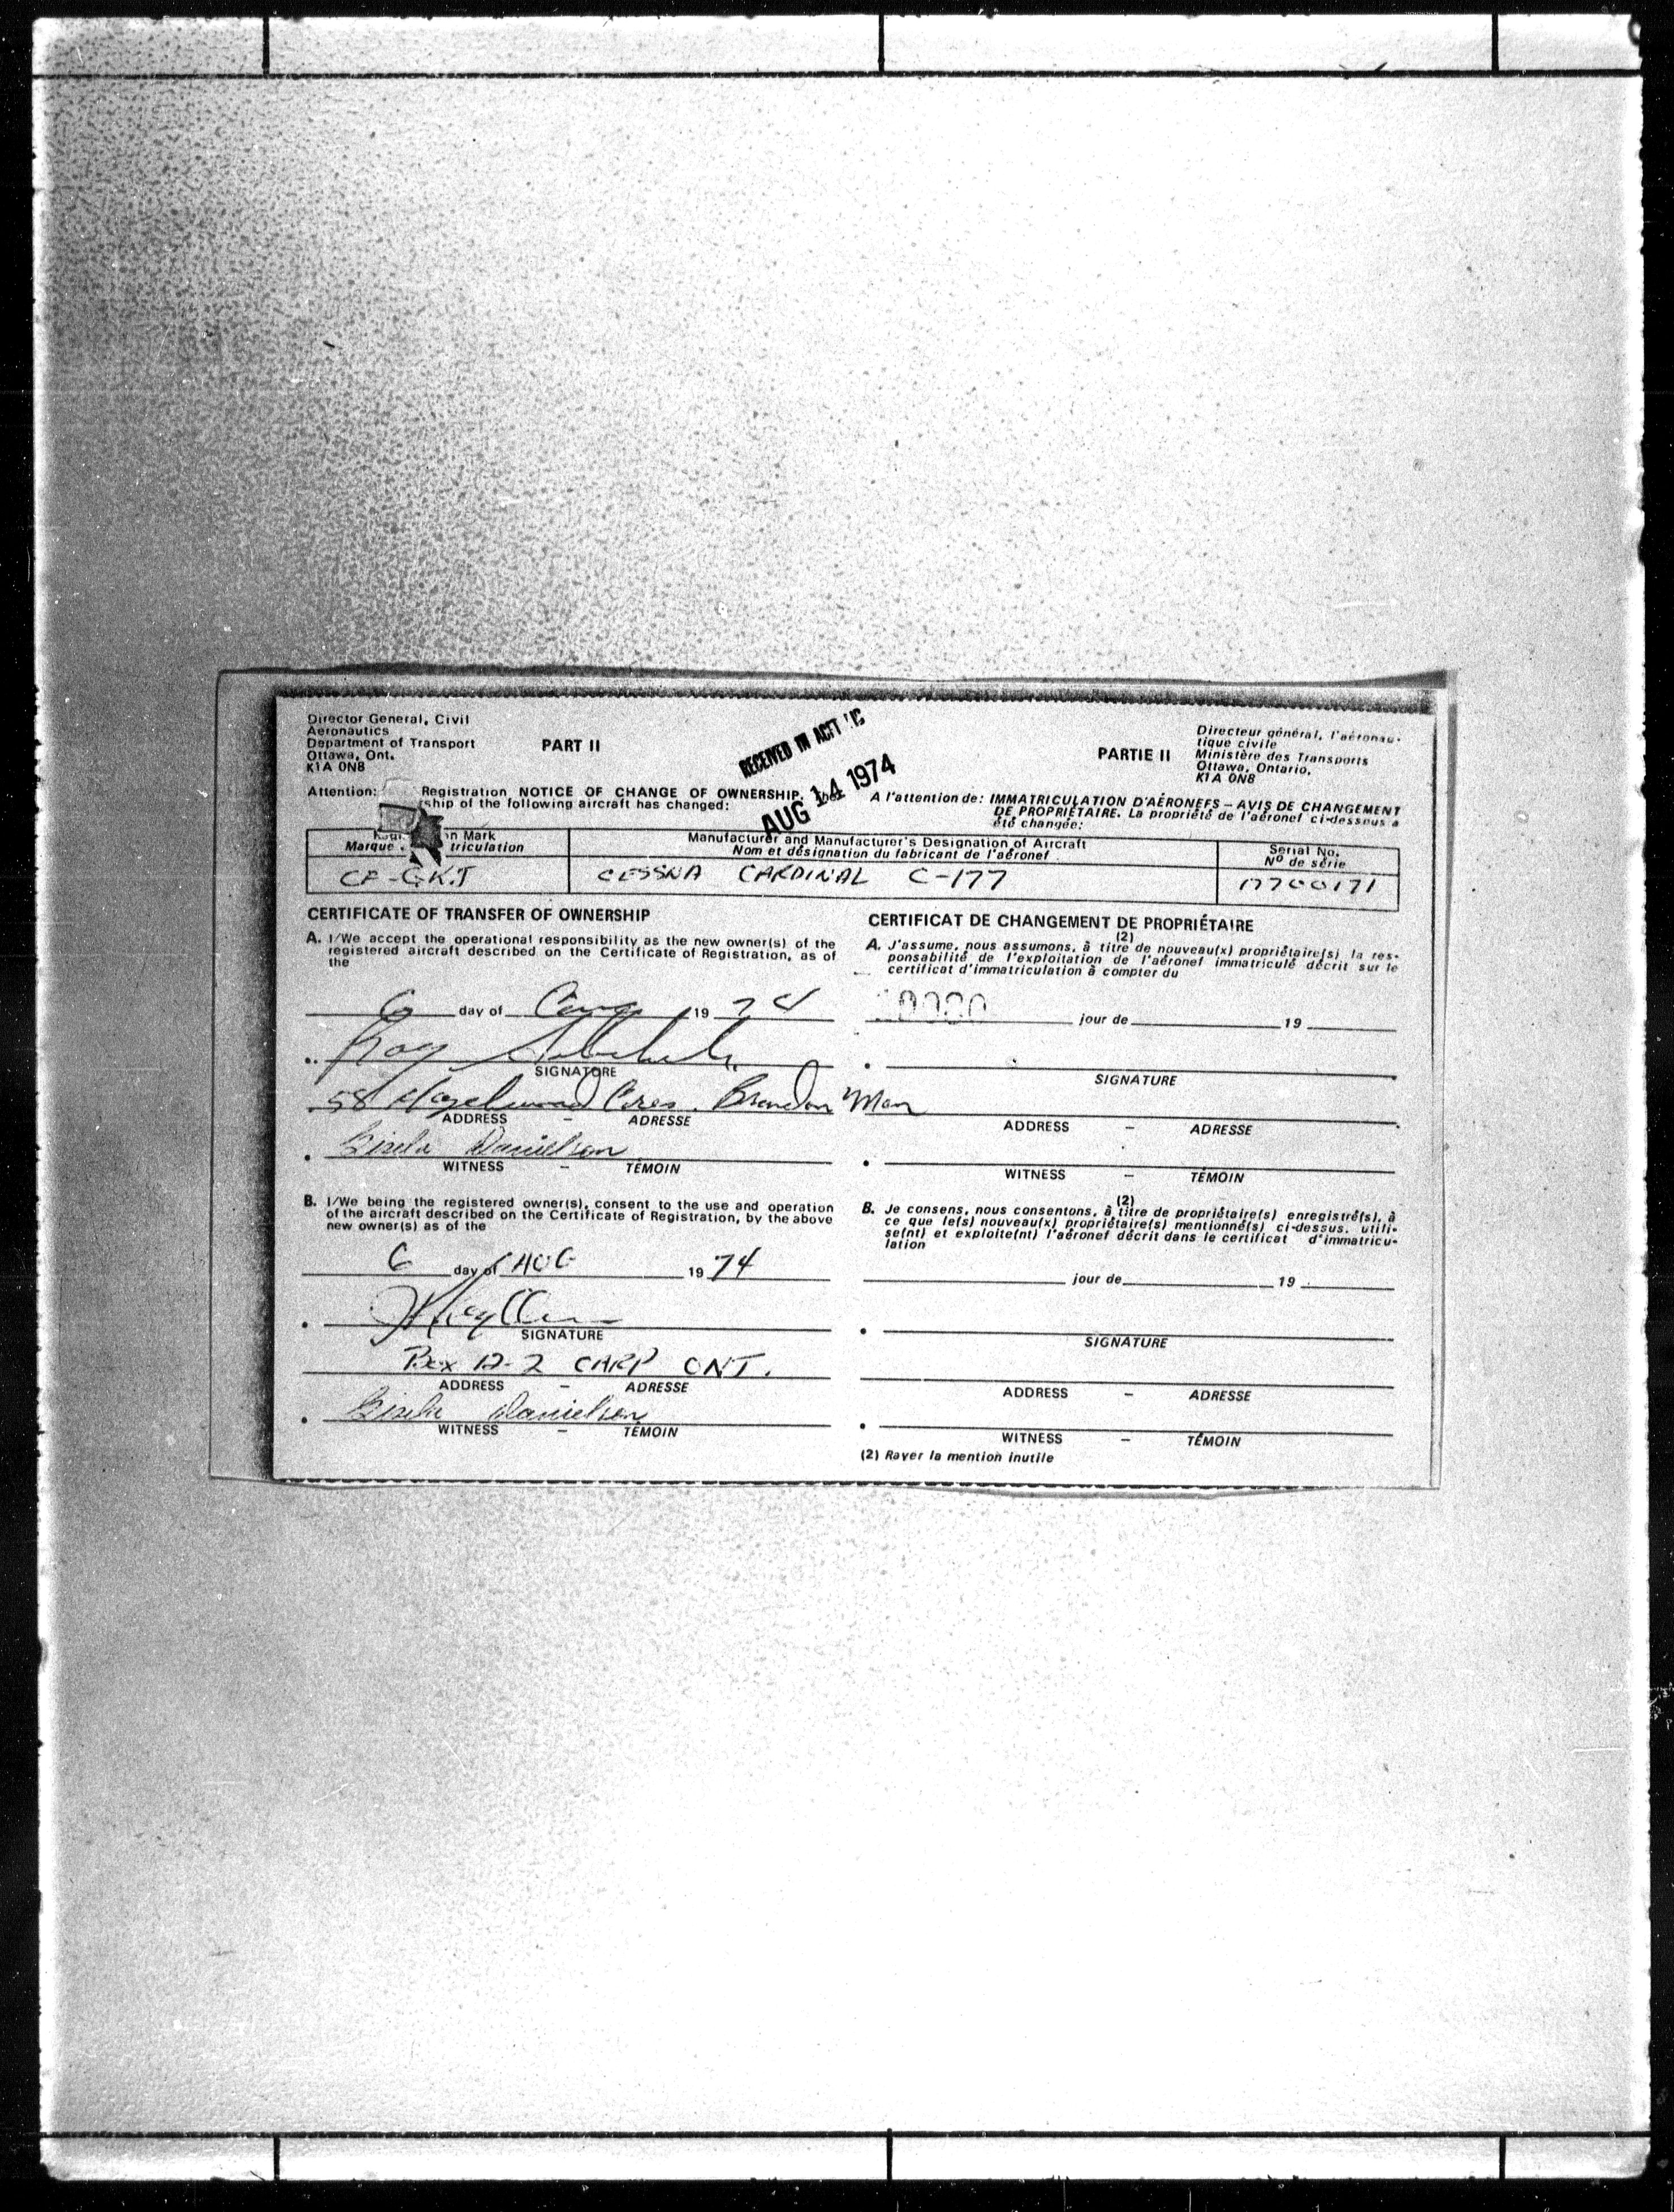 Director General, Civil
Aeronautics
Department of Transport
Ottawa, Ont.
K1A 0N8
PART II
RECEIVED IN
AUG 14 1974
PARTIE II
Directeur général, l'aéronau-
tique civile
Ministère des Transports
Ottawa, Ontario,
K1A 0N8
Attention: Registration NOTICE OF CHANGE OF OWNERSHIP.
ship of the following aircraft has changed:
A l'attention de: IMMATRICULATION D'AÉRONEFS – AVIS DE CHANGEMENT
DE PROPRIÉTAIRE. La propriété de l'aéronef ci-dessous a
été changée:
Mark
Marque triculation
Manufacturer and Manufacturer's Designation of Aircraft
Nom et désignation du fabricant de l'aéronef
Serial No.
Nº de série
CF-GKJ
CESSNA CARDINAL C-177
17700171
CERTIFICATE OF TRANSFER OF OWNERSHIP
A. I/We accept the operational responsibility as the new owner(s) of the
registered aircraft described on the Certificate of Registration, as of
the
6 day of Aug 19 74
Roy
SIGNATURE
58 Hazelwood Cres. Brandon Man
ADDRESS – ADRESSE
Gisela Danielson
WITNESS – TÉMOIN
B. I/We being the registered owner(s), consent to the use and operation
of the aircraft described on the Certificate of Registration, by the above
new owner(s) as of the
6 day of AUG 19 74
SIGNATURE
Box 12-2 CARP ONT.
ADDRESS – ADRESSE
Gisela Danielson
WITNESS – TÉMOIN
CERTIFICAT DE CHANGEMENT DE PROPRIÉTAIRE
(2)
A. J'assume, nous assumons, à titre de nouveau(x) propriétaire(s) la res-
ponsabilité de l'exploitation de l'aéronef immatriculé décrit sur le
certificat d'immatriculation à compter du
jour de 19
SIGNATURE
ADDRESS – ADRESSE
WITNESS – TÉMOIN
(2)
B. Je consens, nous consentons, à titre de propriétaire(s) enregistré(s), à
ce que le(s) nouveau(x) propriétaire(s) mentionné(s) ci-dessus, utili-
se(nt) et exploite(nt) l'aéronef décrit dans le certificat d'immatricu-
lation
jour de 19
SIGNATURE
ADDRESS – ADRESSE
WITNESS – TÉMOIN
(2) Rayer la mention inutile